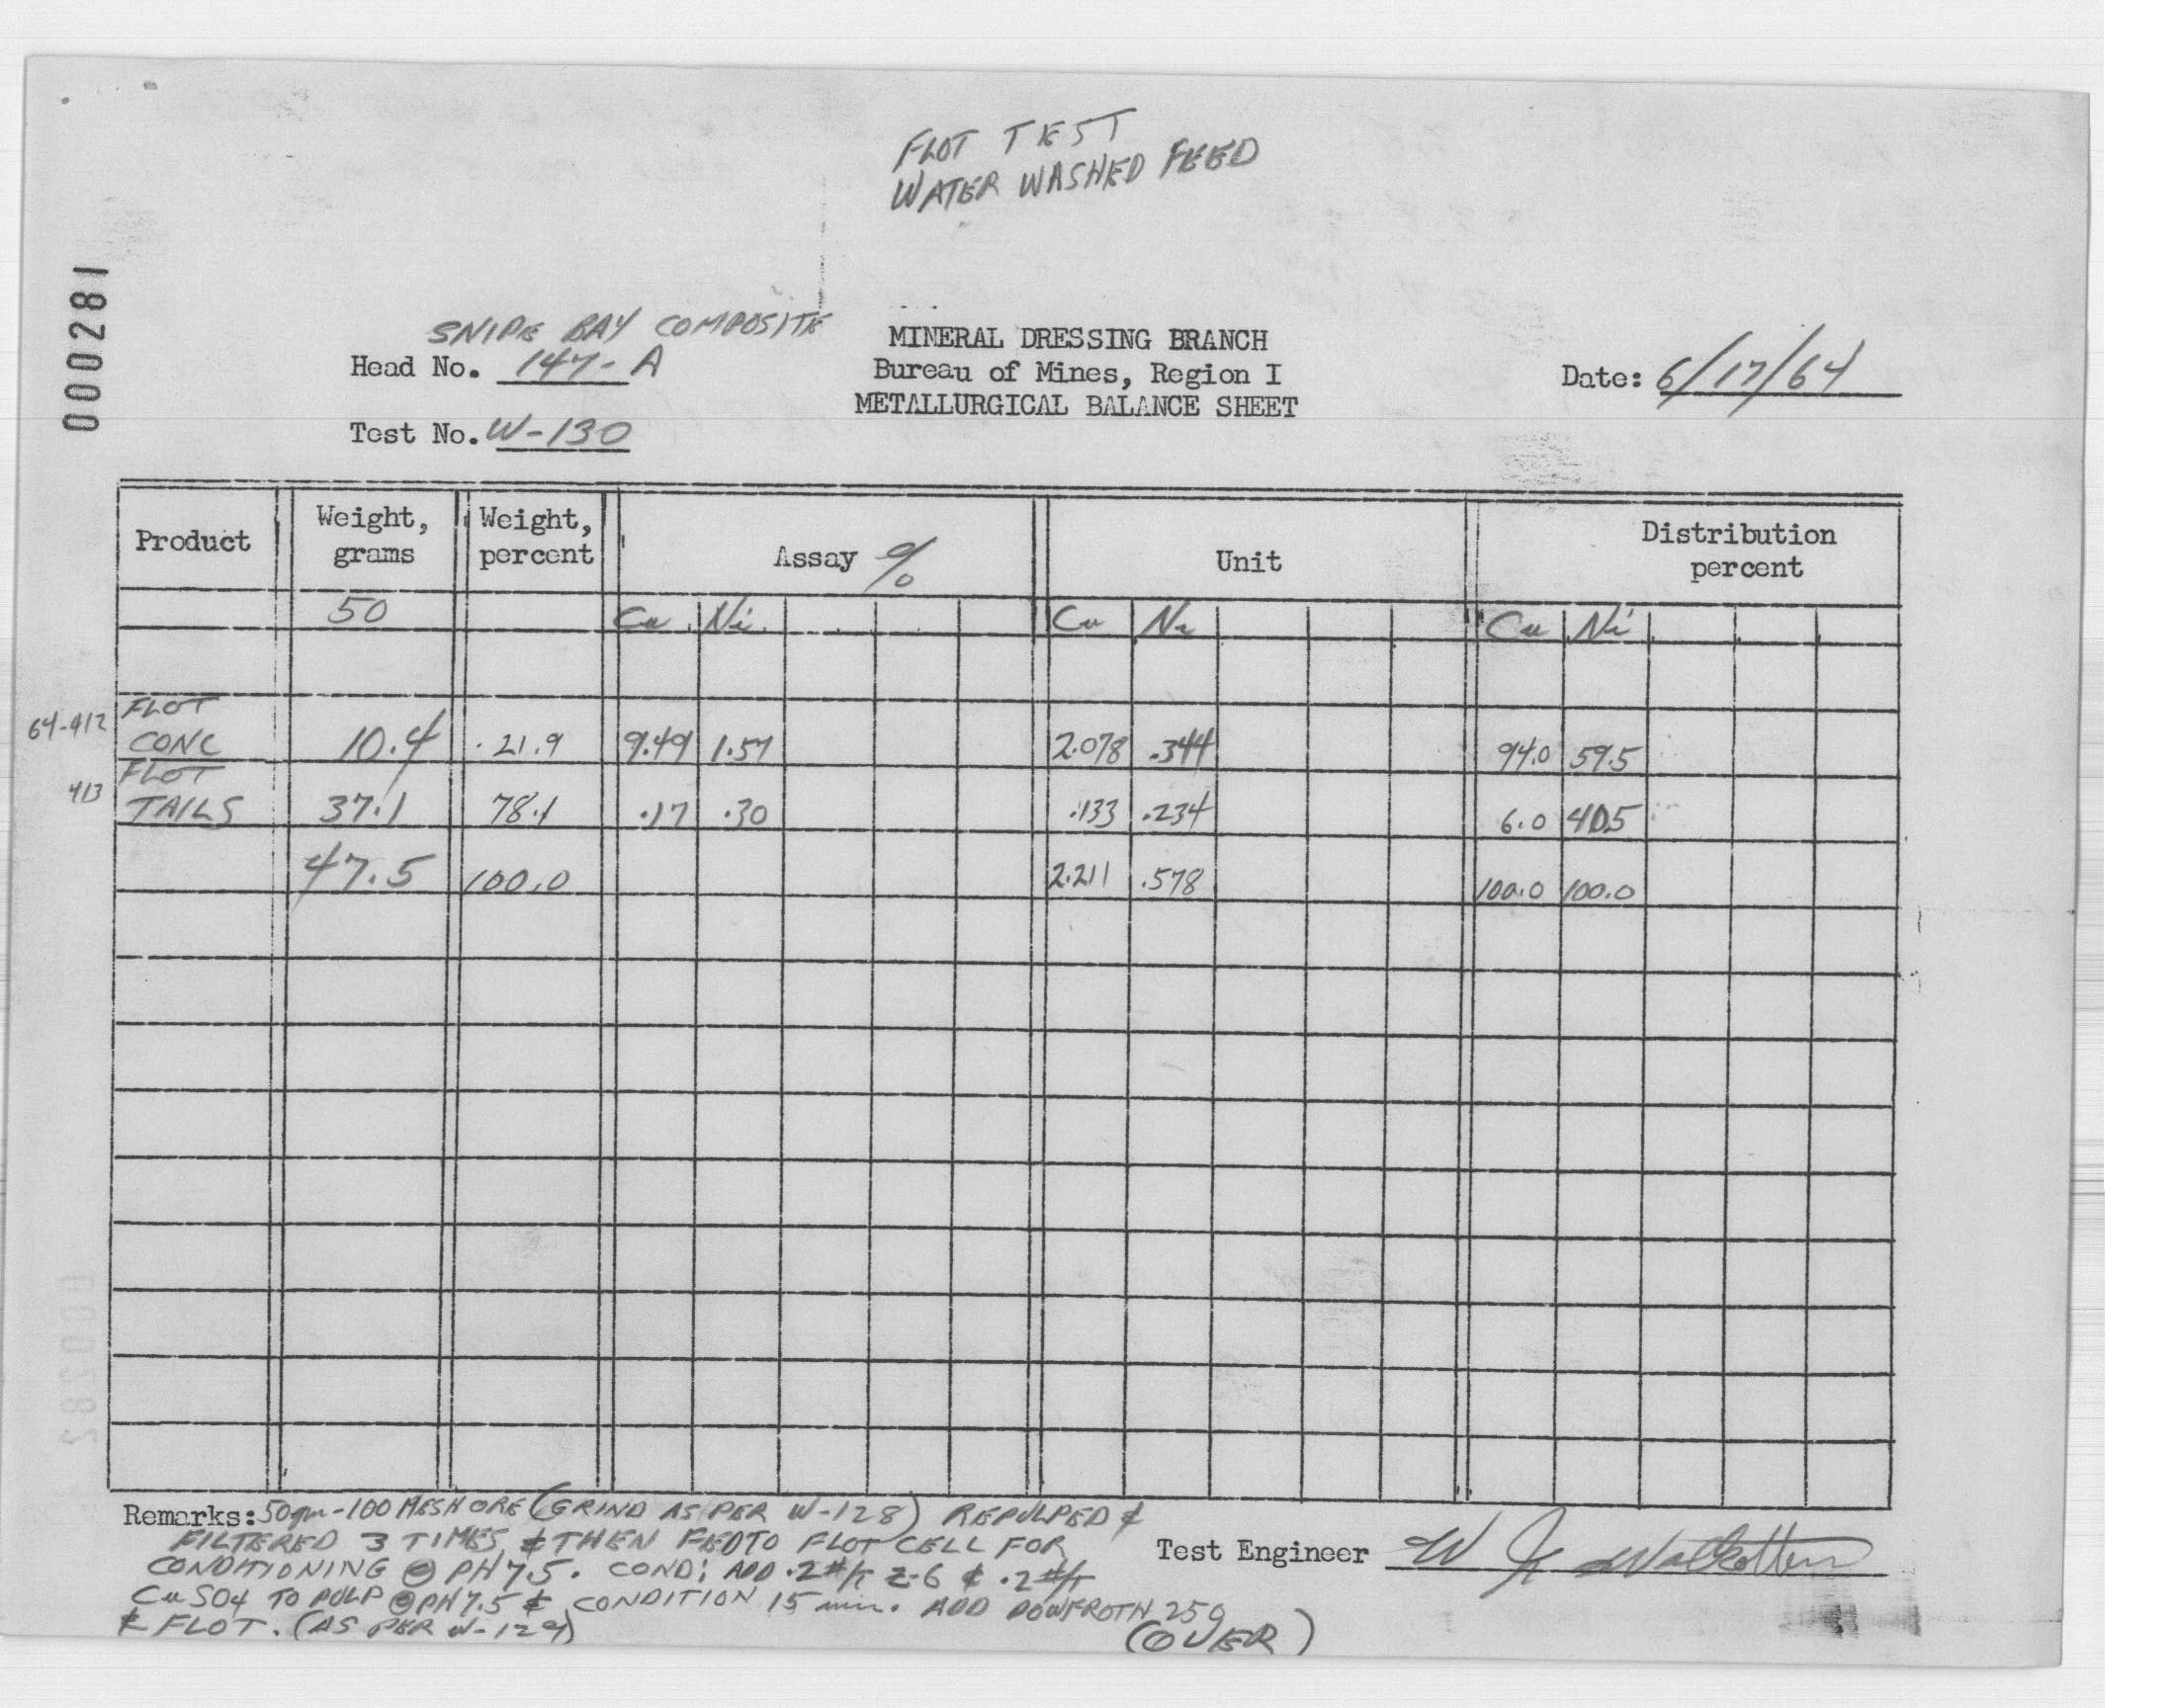 FLOT TEST
WATER WASHED FEED
000281
SNIPE BAY COMPOSITE
Head No. 147-A
Test No. W-130
MINERAL DRESSING BRANCH
Bureau of Mines, Region I
METALLURGICAL BALANCE SHEET
Date: 6/17/64
Product Weight, grams Weight, percent Assay % Unit Distribution percent
50 Cu Ni Cu Ni Cu Ni
64-412 FLOT CONC 10.4 21.9 9.49 1.57 2.078 .344 94.0 59.5
413 FLOT TAILS 37.1 78.1 .17 .30 .133 .234 6.0 40.5
47.5 100.0 2.211 .578 100.0 100.0
Remarks: 50gm -100 MESH ORE (GRIND AS PER W-128) REPULPED &
FILTERED 3 TIMES & THEN FED TO FLOT CELL FOR
CONDITIONING @ PH 7.5. COND: ADD .2 #/T Z-6 & .2 #/T
CuSO4 TO PULP @ PH 7.5 & CONDITION 15 min. ADD DOWFROTH 250
& FLOT. (AS PER W-129)
(OVER)
Test Engineer W